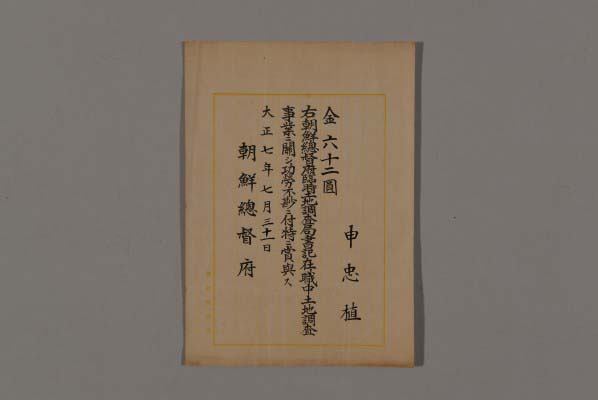 申忠植
金六十二圓
右朝鮮總督府臨時土地調査局書記在職中土地調査
事業ニ關シ功勞不尠ニ付特ニ賞與ス
大正七年七月三十一日
朝鮮總督府